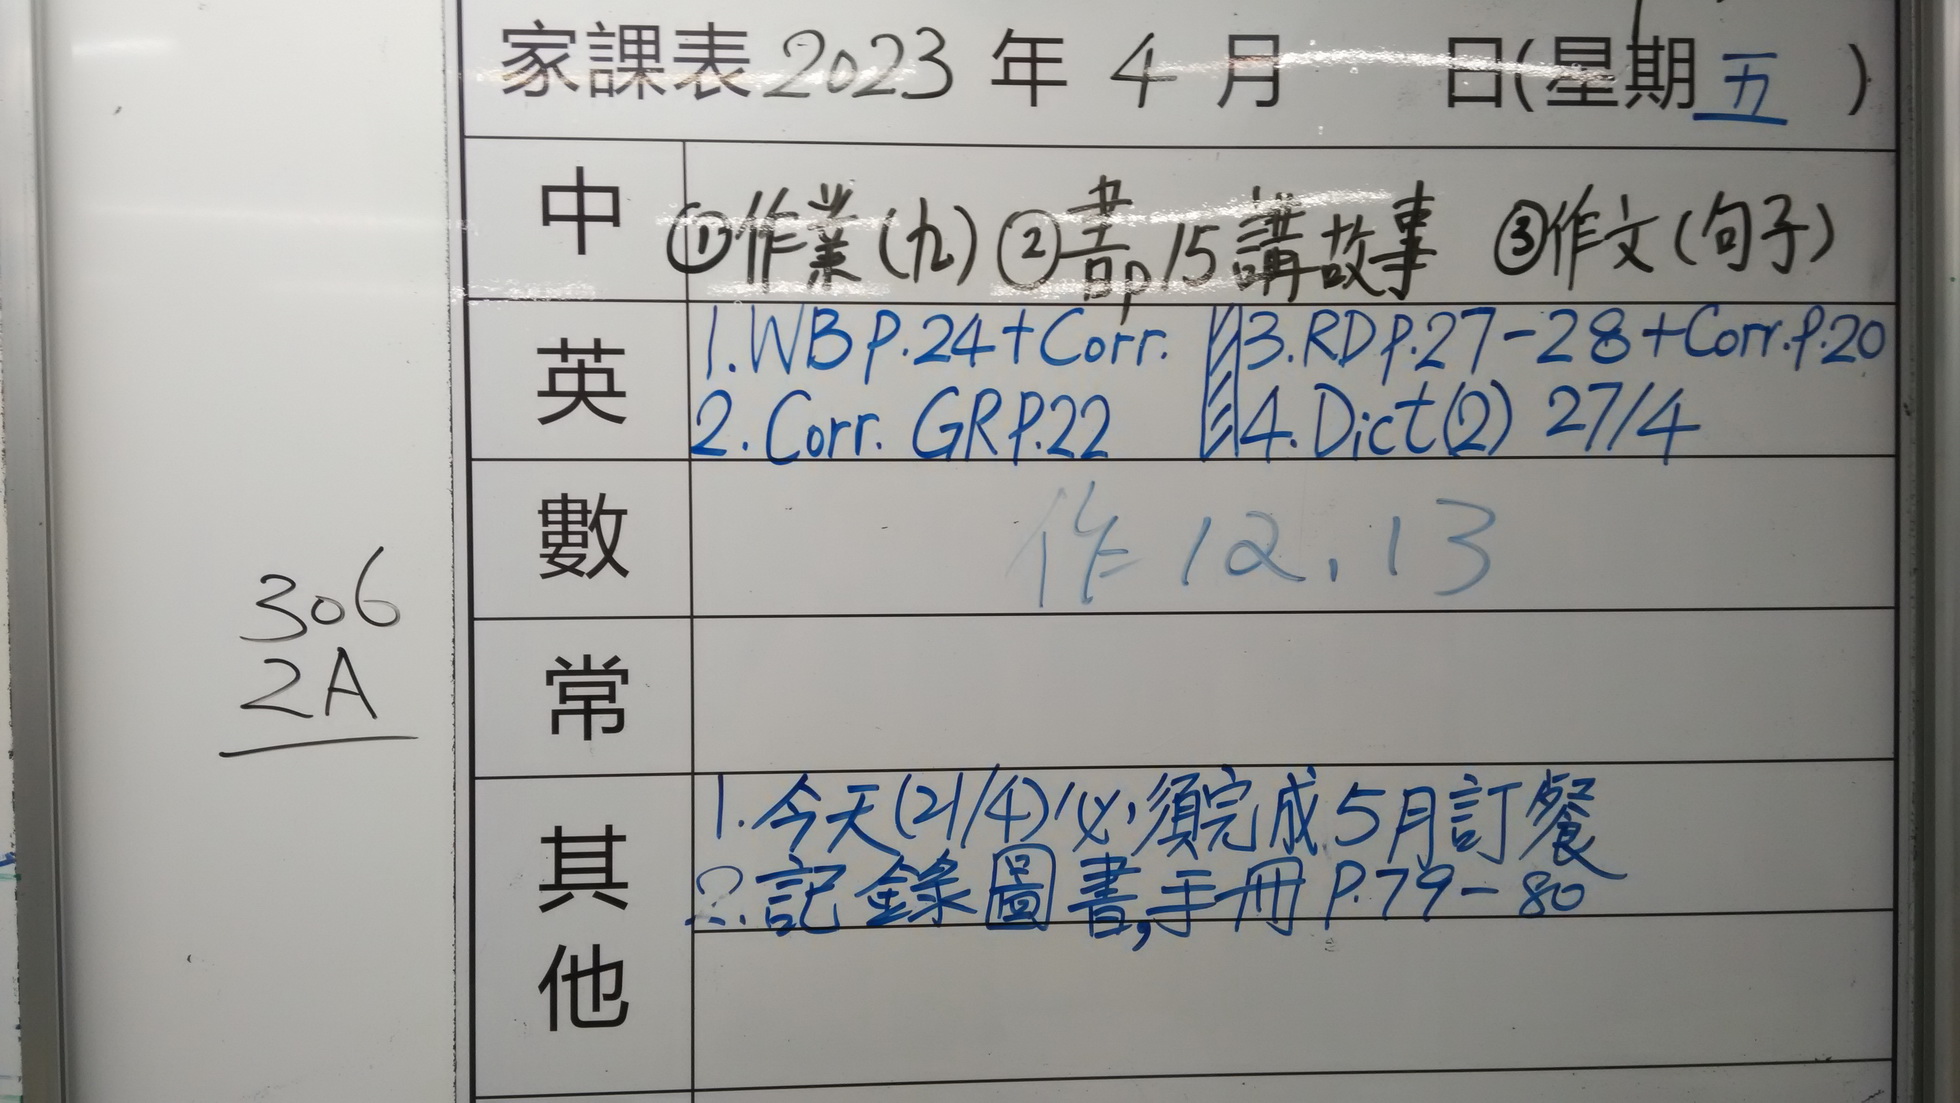 家課表 2023 年 4 月 日(星期五)
中 ①作業(九) ②書p.15講故事 ③作文(句子)
英 1.WB p.24+Corr. 3.RD p.27-28+Corr.p.20
2.Corr. GR P.22 4.Dict(2) 27/4
數 作 12.13
306
2A
常
其他 1.今天(21/4)必須完成5月訂餐
2.記錄圖書,手冊P.79-80